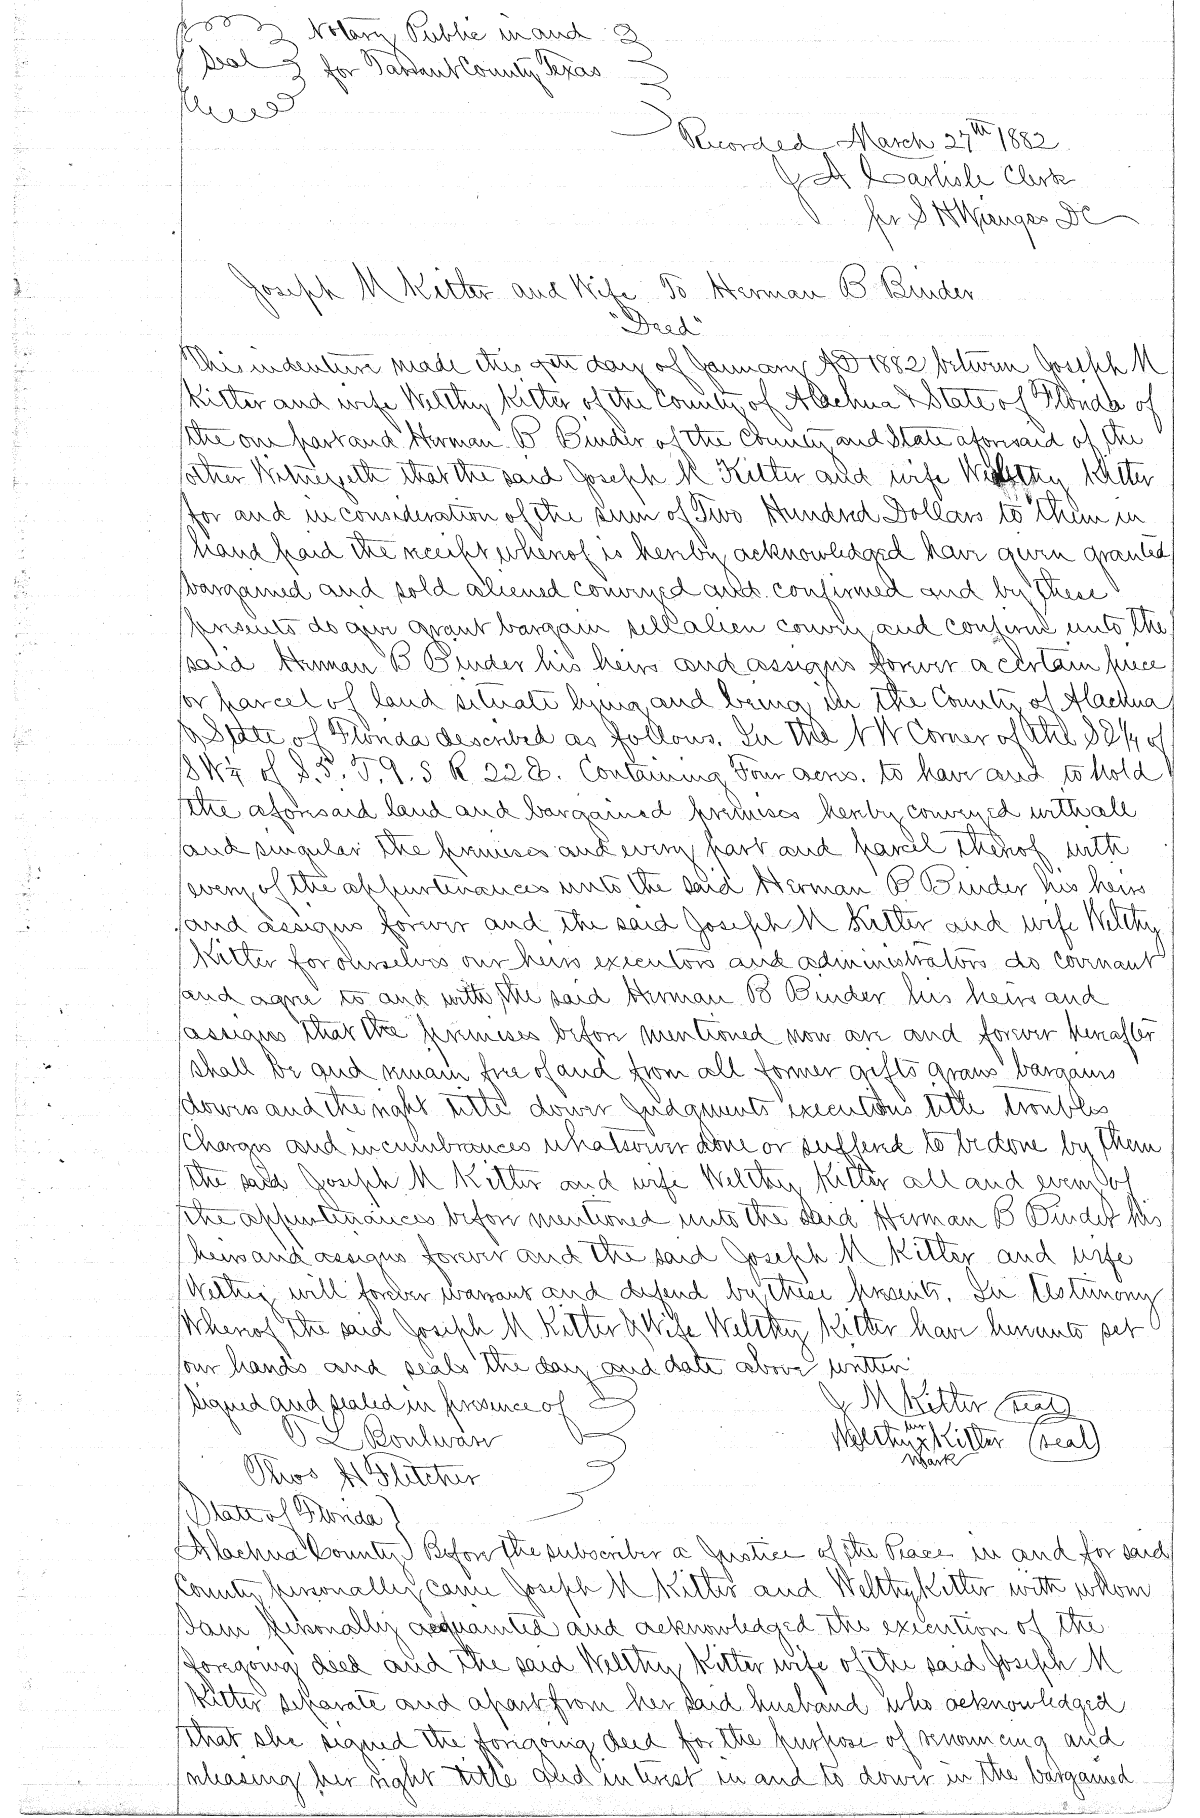 Seal
Notary Public in and
for Tarrant County Texas
Recorded March 27th 1882
J A Carlisle Clerk
pr S H Wienges DC
Joseph M Kitter and Wife To Herman B Binder
"Deed"
This indenture made this 9th day of January AD 1882 between Joseph M
Kitter and wife Welthy Kitter of the County of Alachua & State of Florida of
the one part and Herman B Binder of the County and State aforesaid of the
other Witnesseth that the said Joseph M Kitter and wife Welthy Kitter
for and in consideration of the sum of Two Hundred Dollars to them in
hand paid the receipt whereof is hereby acknowledged have given granted
bargained and sold aliened conveyed and confirmed and by these
presents do give grant bargain sell alien convey and confirm unto the
said Herman B Binder his heirs and assigns forever a certain piece
or parcel of land situate lying and being in the County of Alachua
& State of Florida described as follows. In the NW Corner of the SE 1/4 of
SW 1/4 of S. 5. T. 9. S R 22 E. Containing Four acres. to have and to hold
the aforesaid land and bargained premises hereby conveyed with all
and singular the premises and every part and parcel thereof with
every of the appurtinances unto the said Herman B Binder his heirs
and assigns forever and the said Joseph M Kitter and wife Welthy
Kitter for ourselves our heirs executors and administrators do covenant
and agree to and with the said Herman B Binder his heirs and
assigns that the premises before mentioned now are and forever hereafter
shall be and remain free of and from all former gifts grans bargains
dowers and the right title dower Judgments executions title troubles
Charges and incumbrances whatsoever done or suffered to be done by them
the said Joseph M Kitter and wife Welthy Kitter all and every of
the appurtinances before mentioned unto the said Herman B Binder his
heirs and assigns forever and the said Joseph M Kitter and wife
Welthy will forever warrant and defend by these presents. In testimony
Whereof the said Joseph M Kitter & Wife Welthy Kitter have hereunto set
our hands and seals the day and date above written
Signed and sealed in presence of
T L Boulware
Thos H Fletcher
J M Kitter (seal)
her
Welthy x Kitter (seal)
mark
State of Florida }
Alachua County } Before the subscriber a Justice of the Peace in and for said
County personally came Joseph M Kitter and Welthy Kitter with whom
I am personally acquainted and acknowledged the execution of the
foregoing deed and the said Welthy Kitter wife of the said Joseph M
Kitter separate and apart from her said husband who acknowledged
that she signed the foregoing deed for the purpose of renouncing and
releasing her right title and interest in and to dower in the bargained